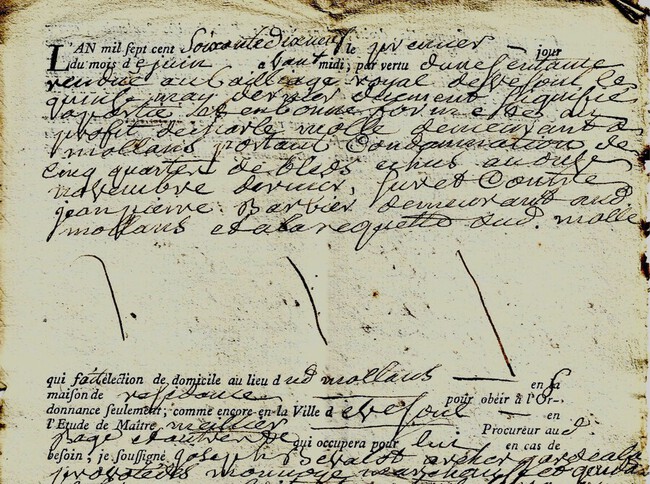 L'AN mil sept cent Soixante dixneuf le premier jour
du mois de juin avant midi; par vertu d'une Sentance
rendue au Bailliage royal de Vesoul le
quinze may dernier duement signifié
et en bonne forme et au
profit de Charle molle demeurant a
mollans portant Condamnation de
cinq quartes de bleds echus au onze
novembre dernier, sur et Contre
jean pierre Barbier demeurant aud.
mollans et a la requette dud. molle
qui fait élection de domicile au lieu dud mollans en sa
maison de residance pour obéir à l'Or-
donnance seulement; comme encore en la Ville de Vesoul en
l'Etude de Maître Procureur aud
qui occupera pour lui en cas de
besoin; je soussigné joseph archer garde